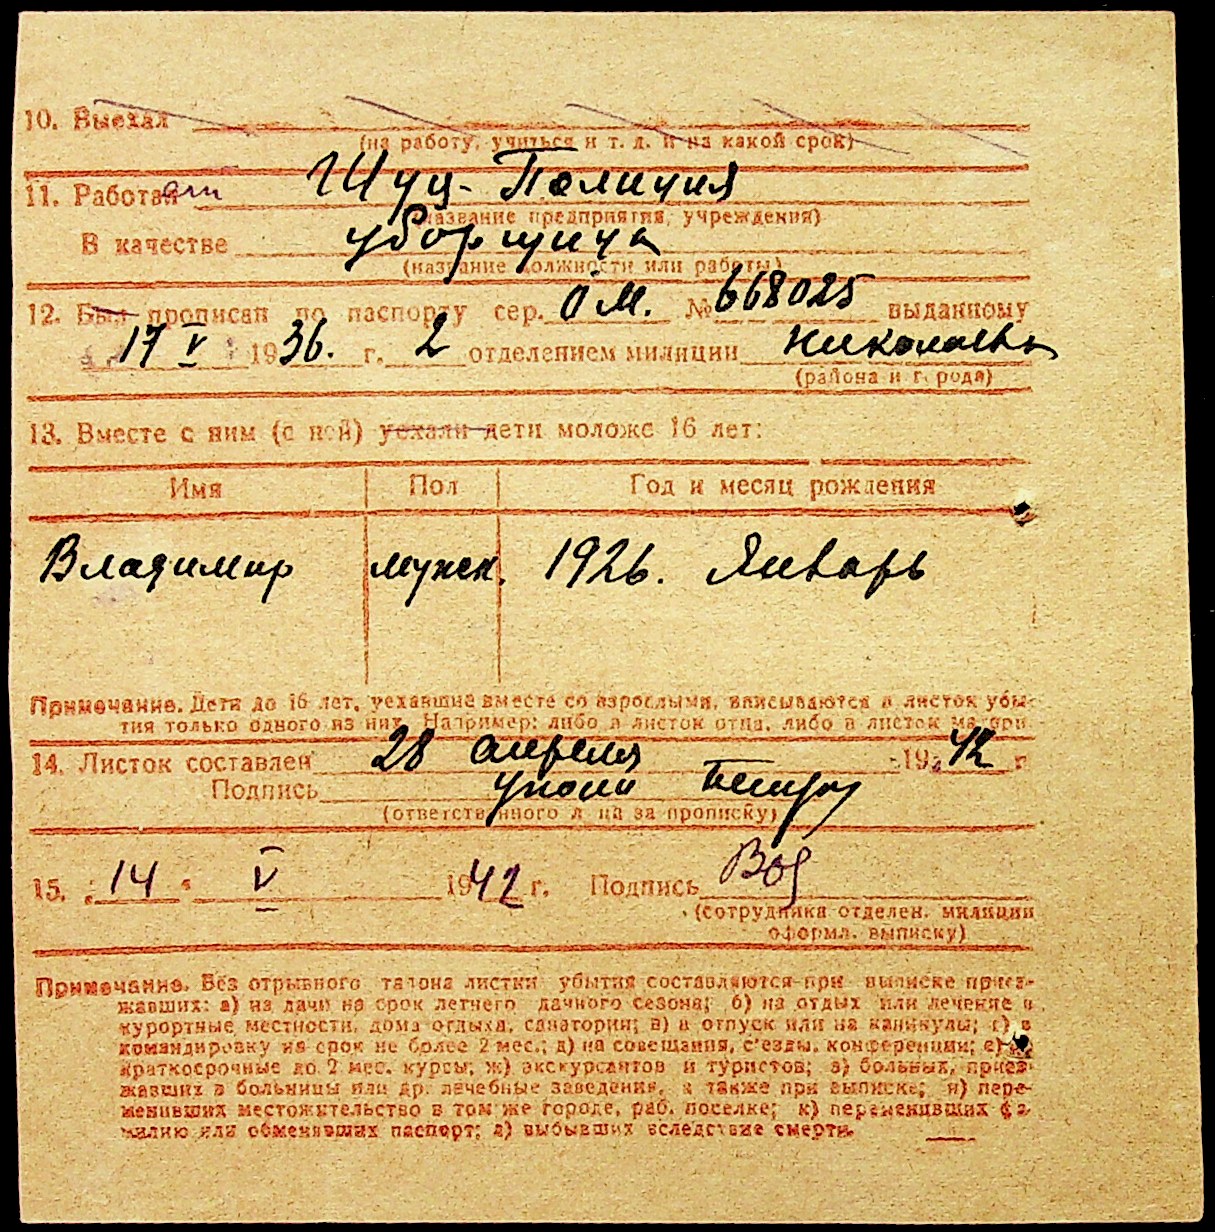 10. Выехал
(на работу, учиться и т. д. и на какой срок)
11. Работает Шуц-Полиция
(название предприятия, учреждения)
В качестве уборщица
(название должности или работы)
12. Был прописан по паспорту сер. ОМ. № 668025 выданному
17 V 1936. г. 2 отделением милиции Николаева
(района и города)
13. Вместе с ним (с ней) уехали дети моложе 16 лет:
Имя Пол Год и месяц рождения
Владимир мужск. 1926. Январь
Примечание. Дети до 16 лет, уехавшие вместе со взрослыми, вписываются в листок убы-
тия только одного из них. Например: либо в листок отца, либо в листок матери.
14. Листок составлен 28 апреля 1942 г
Подпись
(ответственного лица за прописку)
15. "14" V 1942 г. Подпись
(сотрудника отделен. милиции
оформл. выписку)
Примечание. Без отрывного талона листки убытия составляются при выписке приез-
жавших: а) на дачи на срок летнего дачного сезона; б) на отдых или лечение в
курортные местности, дома отдыха, санатории; в) в отпуск или на каникулы; г) в
командировку на срок не более 2 мес.; д) на совещания, с'езды, конференции; е)
краткосрочные до 2 мес. курсы; ж) экскурсантов и туристов; з) больных, приез-
жавших в больницы или др. лечебные заведения, а также при выписке; и) пере-
менивших местожительство в том же городе, раб. поселке; к) переменивших фа-
милию или обменявших паспорт; л) выбывших вследствие смерти.